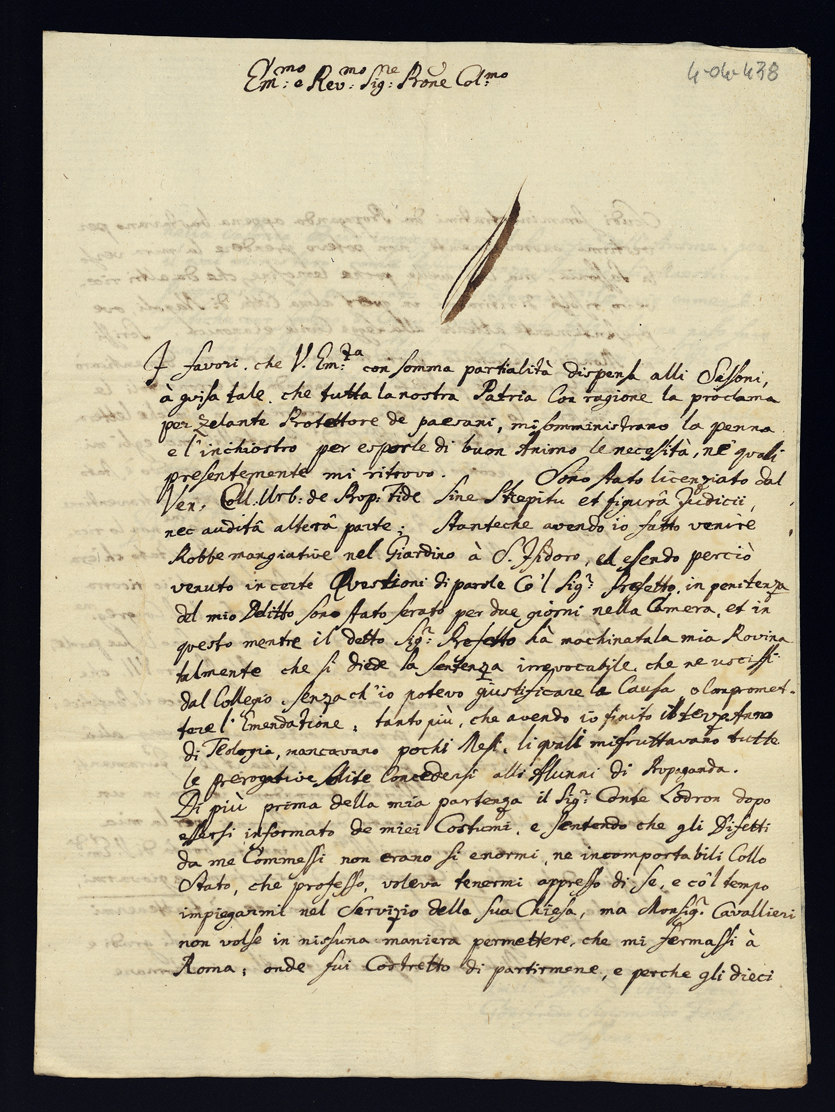 4-04-438
Em:mo e Rev:mo Sig:ne Prone Col:mo
I favori, che V. Em:za con somma partialità dispensa alli Sassoni,
à guisa tale, che tutta la nostra Patria con ragione la proclama
per zelante Protettore de paesani, mi somministrano la penna
e l'inchiostro per esporle di buon Animo le necesità, nè quali
presentemente mi ritrovo. Sono stato licenziato dal
Ven. Coll. Urb: de Prop: Fide Sine Strepitu et figurâ Judicii,
nec auditâ alterâ parte; Stanteche avendo io fatto venire
Robbe mangiative nel Giardino à S. Isidoro, ed esendo perciò
venuto in certe Questioni di parole co'l Sig:r Prefetto, in penitenza
del mio Delitto sono stato serato per due giorni nella Camera, et in
questo mentre il detto Sig:r Prefetto hà machinata la mia Rovina
talmente che si diede la Sentenza irrevocabile, che ne uscissi
dal Collegio, senza ch'io potevo giustificare la Causa, o Compromet-
tere l'Emendatione; tanto più, che avendo io finito il terzo Anno
di Teologia, mancavano pochi Mesi, li quali mi fruttavano tutte
le prerogative solite Concedersi alli Alunni di Propaganda.
Di più prima della mia partenza il Sig:r Conte Lodron dopo
essersi informato de miei Costumi, e sentendo che gli Difetti
da me Commessi non erano si enormi, ne incomportabili Collo
Stato, che professo, voleva tenermi appresso di se, e co'l tempo
impiegarmi nel Servizio della sua Chiesa, ma Monsig:r Cavallieri
non volse in nissuna maniera permettere, che mi fermassi à
Roma; onde fui Costretto di partirmene, e perche gli dieci